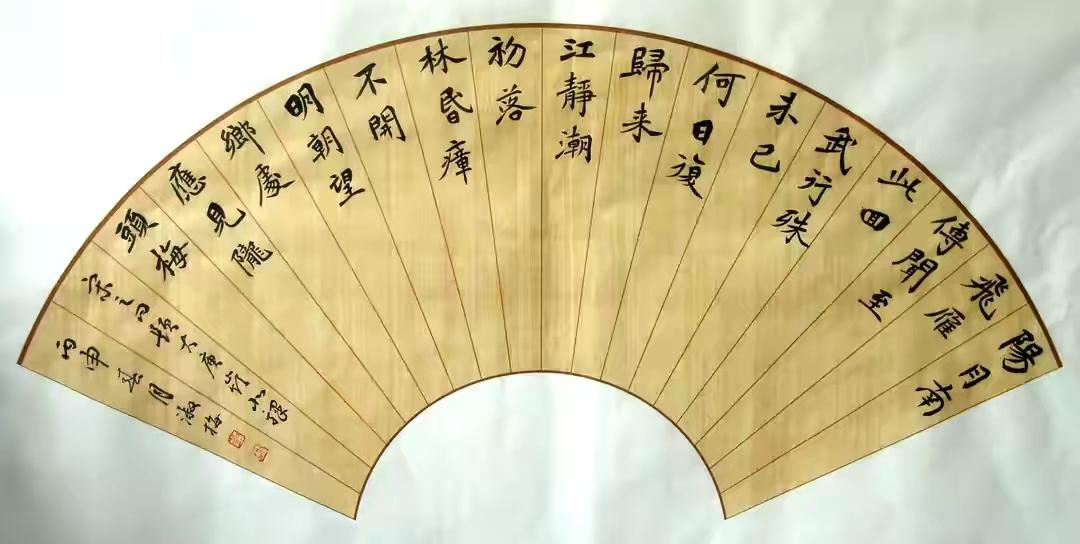 陽月南
飛雁
傳聞至
此回
武行殊
未已
何日復
歸来
江靜潮
初落
林昏瘴
不開
明朝望
鄉處
應見隴
頭梅
宋之问题大庾岭北驿
丙申月淑梅